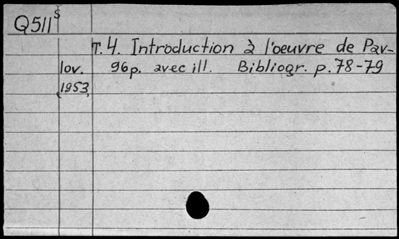 Q511s
T.4. Introduction à l'oeuvre de Pav-
lov. 96p. avec ill. Bibliogr. p.78-79
1953